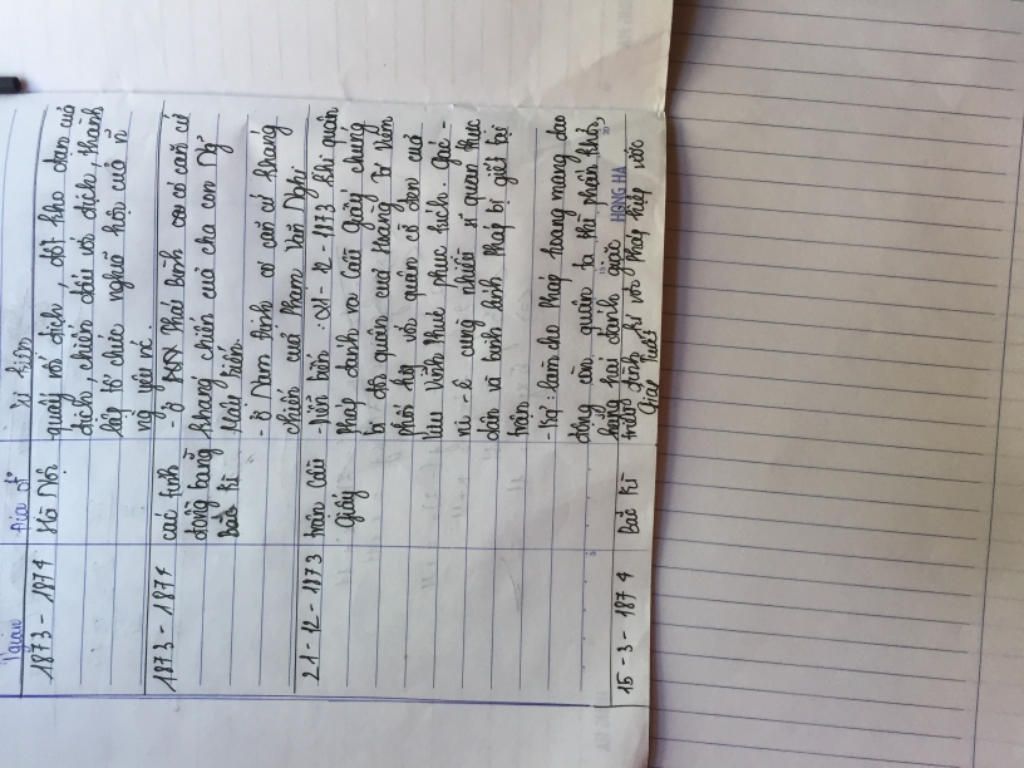 Thời gian Địa điểm Sự kiện
1873 - 1874 Hà Nội quấy rối địch, đốt kho đạn của
địch, chiến đấu với địch, thành
lập tổ chức nghĩa hội của
ng yêu nc
1873 - 1874 các tỉnh - Ở Thái Bình có căn cứ
đồng bằng kháng chiến của cha con Ng
Bắc Kì Mậu Kiến.
- Ở Nam Định có căn cứ kháng
chiến của Phạm Văn Nghị
21 - 12 - 1873 trận Cầu - Diễn biến : 21 - 12 - 1873 khi quân
Giấy Pháp đánh ra Cầu Giấy chúng
bị đội quân của Hoàng Tá Viêm
phối hợp với quân cờ đen của
Lưu Vĩnh Phúc phục kích. Gác -
ni - ê cùng nhiều sĩ quan thực
dân và binh lính Pháp bị giết tại
trận
- KQ : làm cho Pháp hoang mang dao
động còn quân ta thì phấn khởi,
hăng hái đánh giặc
15 - 3 - 1874 Bắc Kì triều đình kí với Pháp hiệp ước
Giáp Tuất
HỒNG HÀ